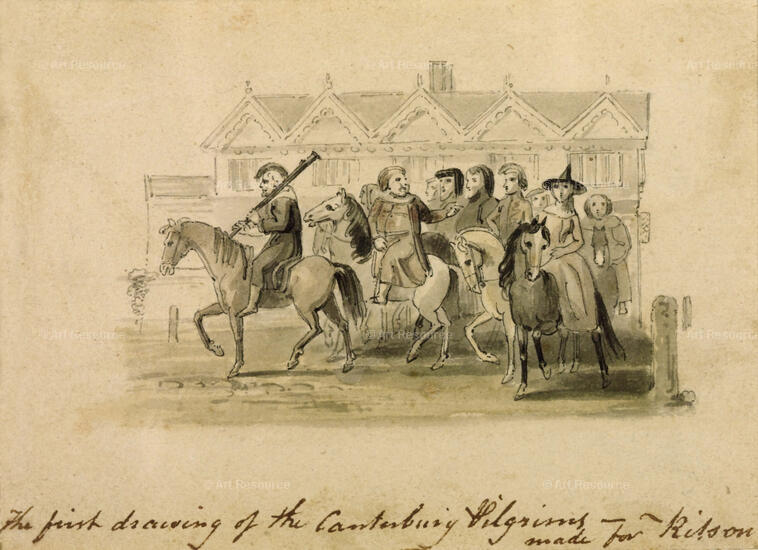 © Art Resource © Art Resource © Art Resource
© Art Resource © Art Resource © Art Resource
© Art Resource © Art Resource
The first drawing of the Canterbury Pilgrims —
made for Ritson